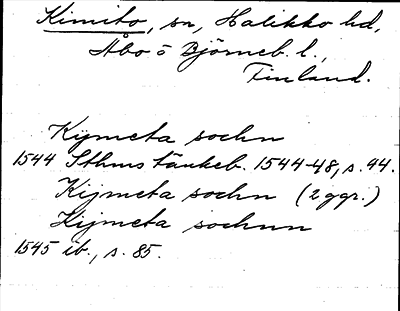 Kimito, sn, Halikko hd,
Åbo o Björneb. l.,
Finland.
Kymeta sochn
1544 Sthms tänkeb. 1544-48, s. 94.
Kijmeta sochn (2 ggr.)
Kijmeta sochnn
1545 ib., s. 85.